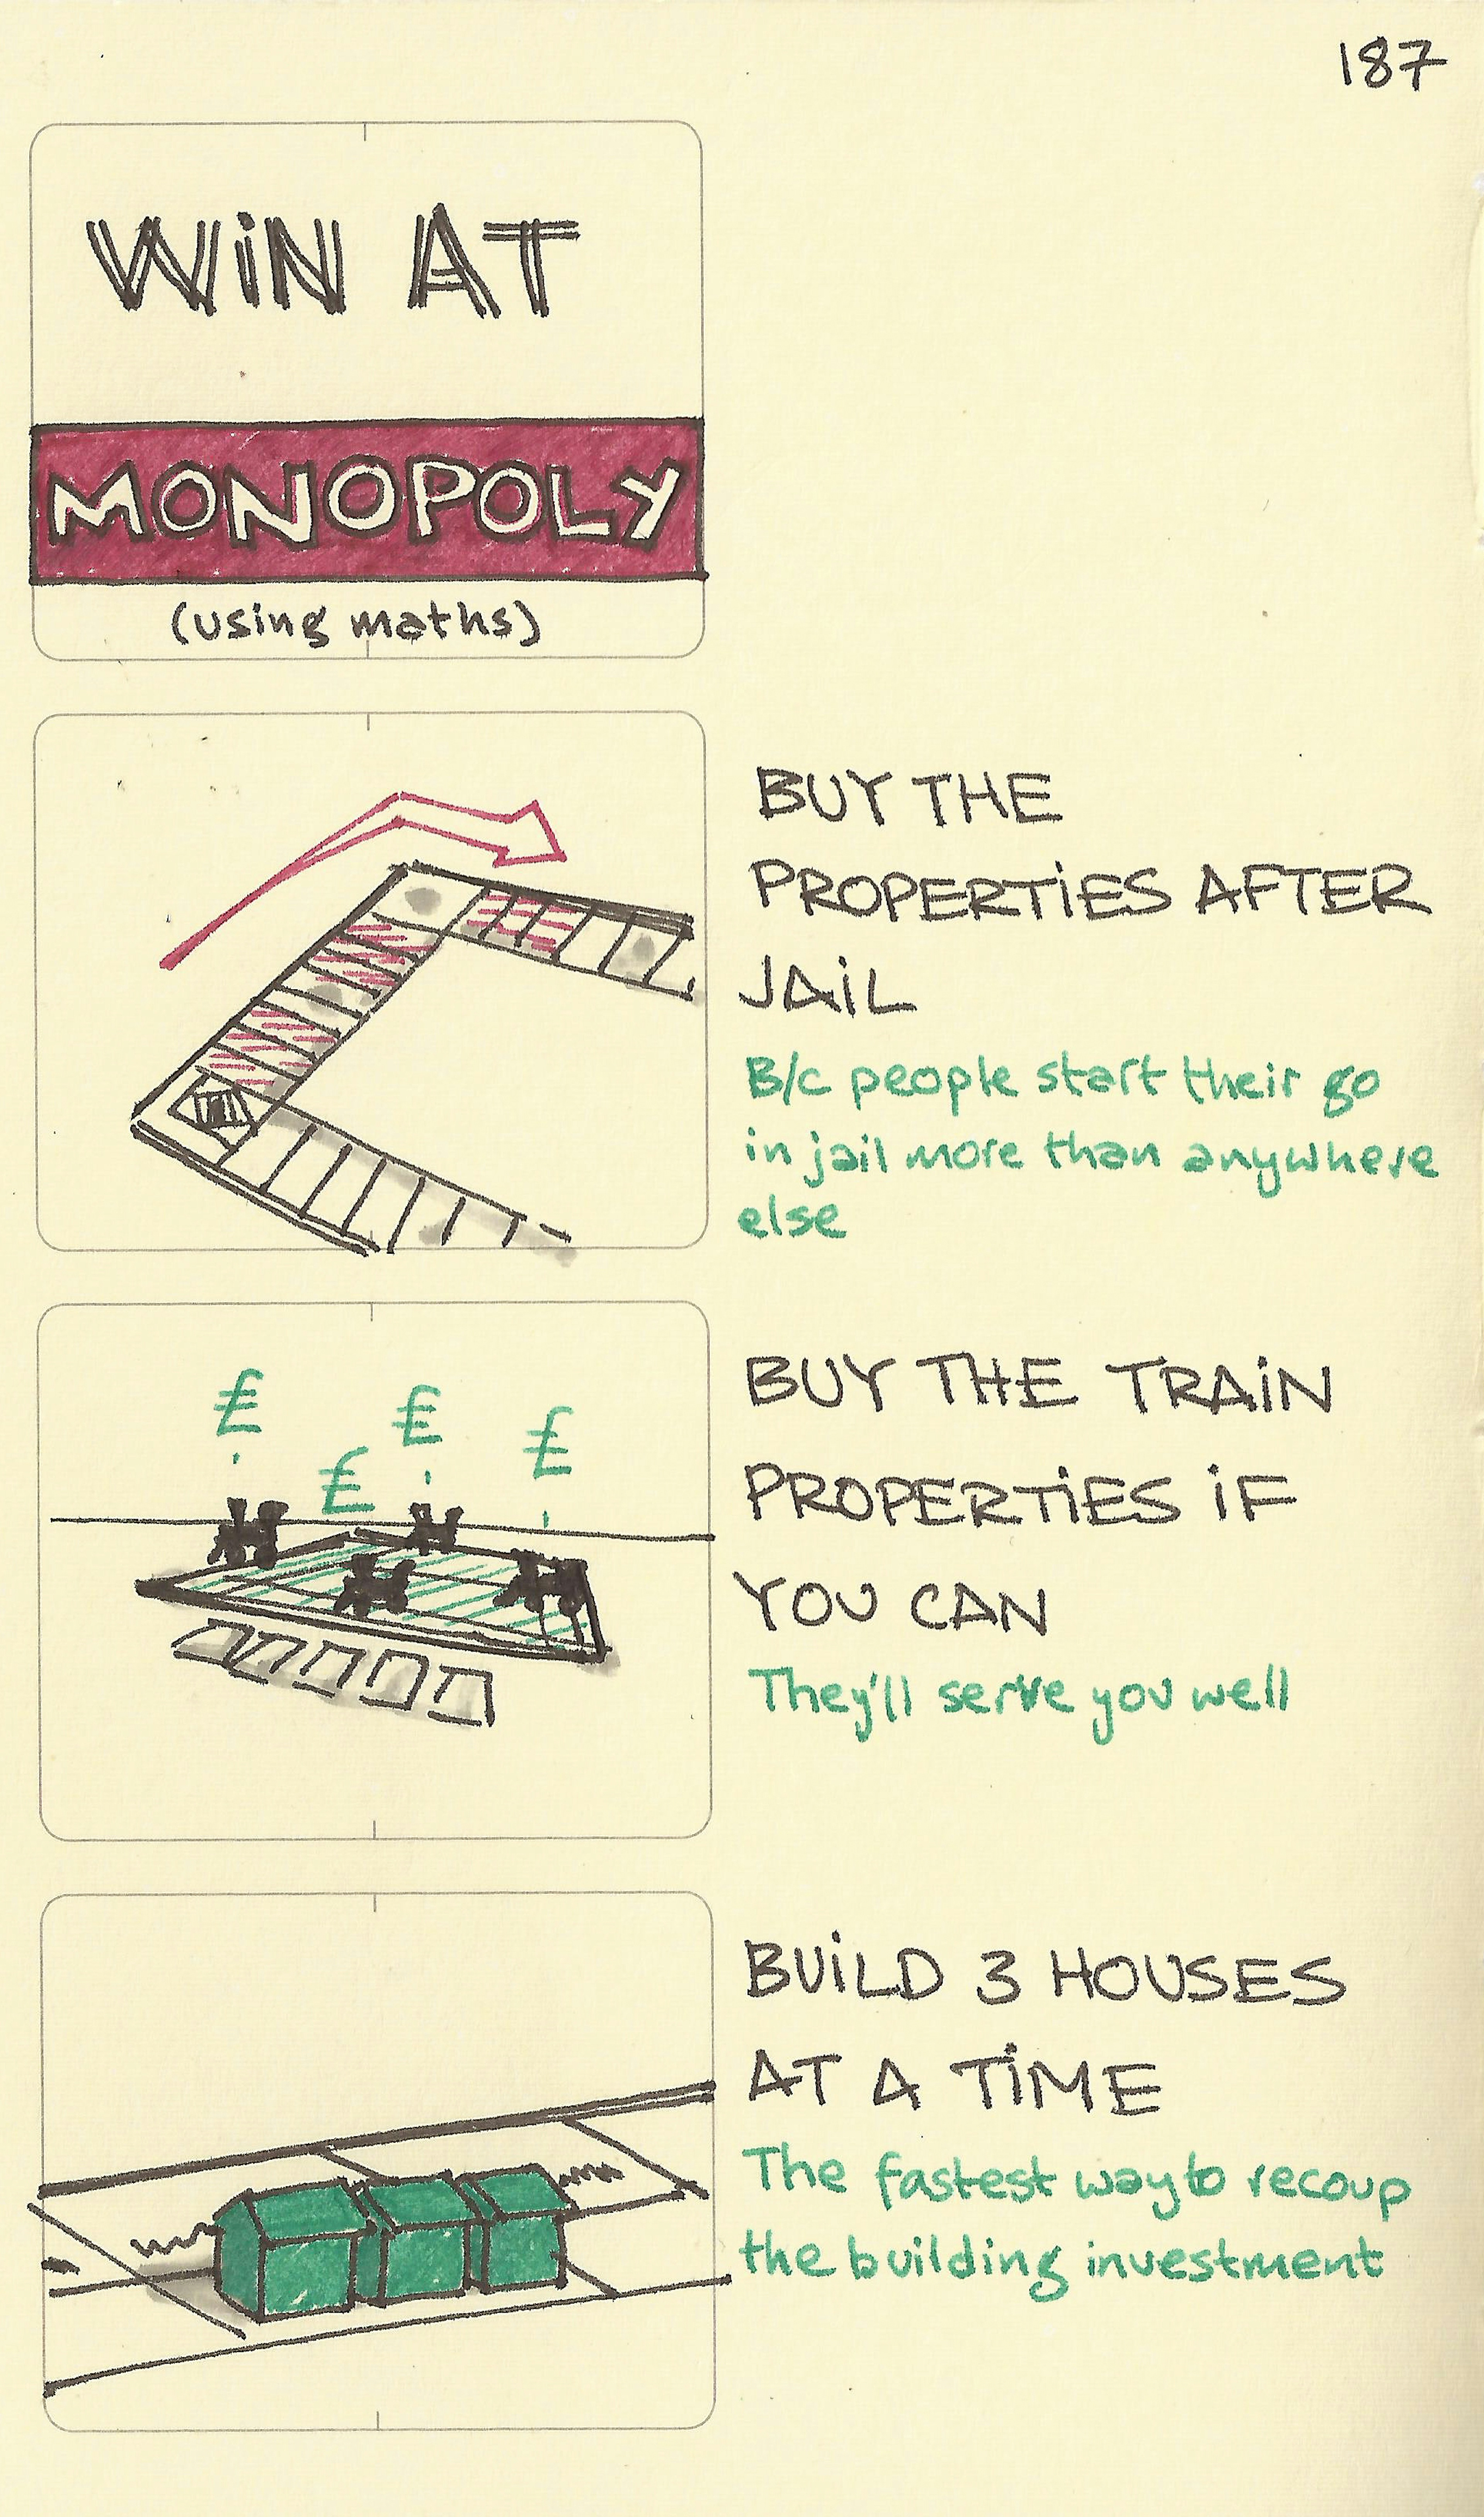 187
WiN AT
MONOPOLY
(using maths)
BUY THE
PROPERTiES AFTER
JAiL
B/c people start their go
in jail more than anywhere
else
£ £ £ £
BUY THE TRAiN
PROPERTiES iF
YOU CAN
They'll serve you well
BUiLD 3 HOUSES
AT A TiME
The fastest way to recoup
the building investment